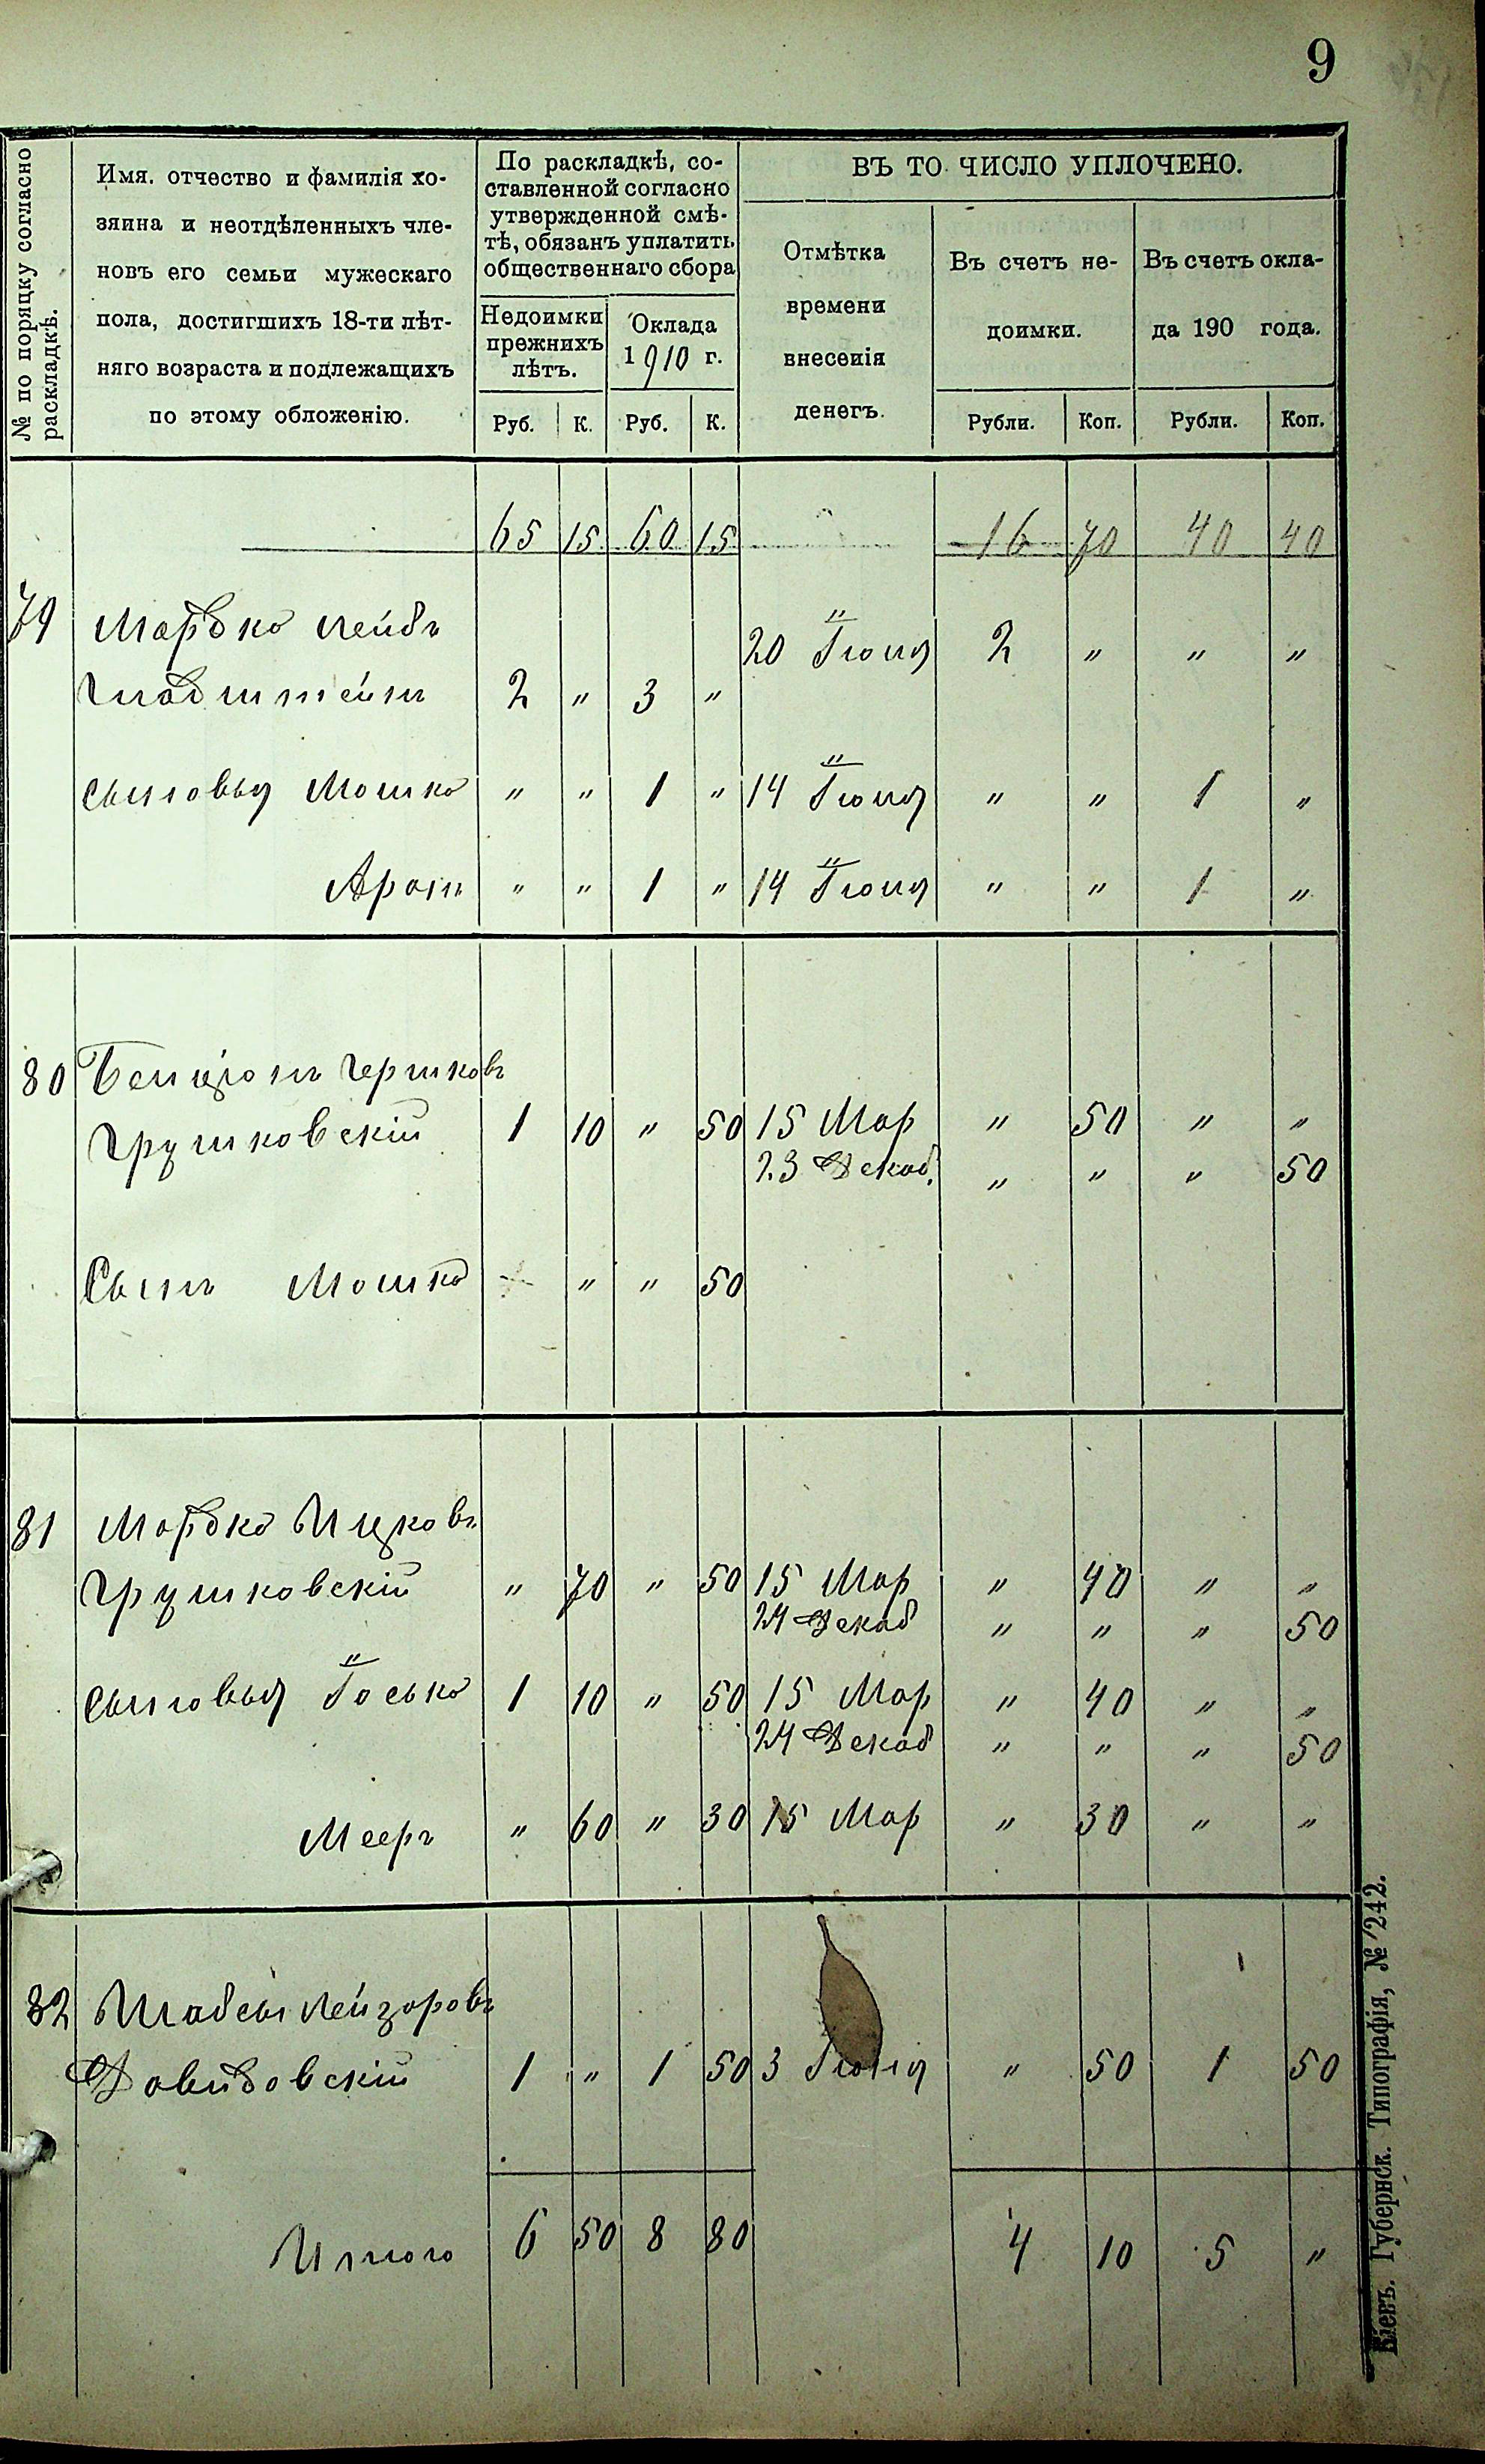 9
№ по порядку согласно раскладкѣ.
Имя, отчество и фамилія хо-
зяина и неотдѣленныхъ чле-
новъ его семьи мужескаго
пола, достигшихъ 18-ти лѣт-
няго возраста и подлежащихъ
по этому обложенію.
По раскладкѣ, со-
ставленной согласно
утвержденной смѣ-
тѣ, обязанъ уплатить
общественнаго сбора
Недоимки
прежнихъ
лѣтъ.
Оклада
1910 г.
Руб. К. Руб. К.
ВЪ ТО ЧИСЛО УПЛОЧЕНО.
Отмѣтка
времени
внесенія
денегъ.
Въ счетъ не-
доимки.
Въ счетъ окла-
да 190 года.
Рубли. Коп. Рубли. Коп.
65 15 60 15 16 70 40 40
79 Мордко Лейбъ
20 Іюня 2 " " "
2 " 3 "
Сыновья Мошко " " 1 " 14 Іюня " " 1 "
Аронъ " " 1 " 14 Іюня " " 1 "
80 Бенціонъ Гершковъ
Грушковскій 1 10 " 50 15 Мар " 50 " "
23 Декаб. " " " 50
Сынъ Мошко " " 50
81 Мордко Ицковъ
Грушковскій " 70 " 50 15 Мар " 40 " "
24 Декаб " " " 50
Сыновья Іосько 1 10 " 50 15 Мар " 40 " "
24 Декаб " " " 50
Мееръ " 60 " 30 15 Мар " 30 " "
82 Шабсы Лейзоровъ
Давидовскій 1 " 1 50 3 " 50 1 50
Итого 6 50 8 80 4 10 5 "
Кіевъ. Губернск. Типографія, № 242.